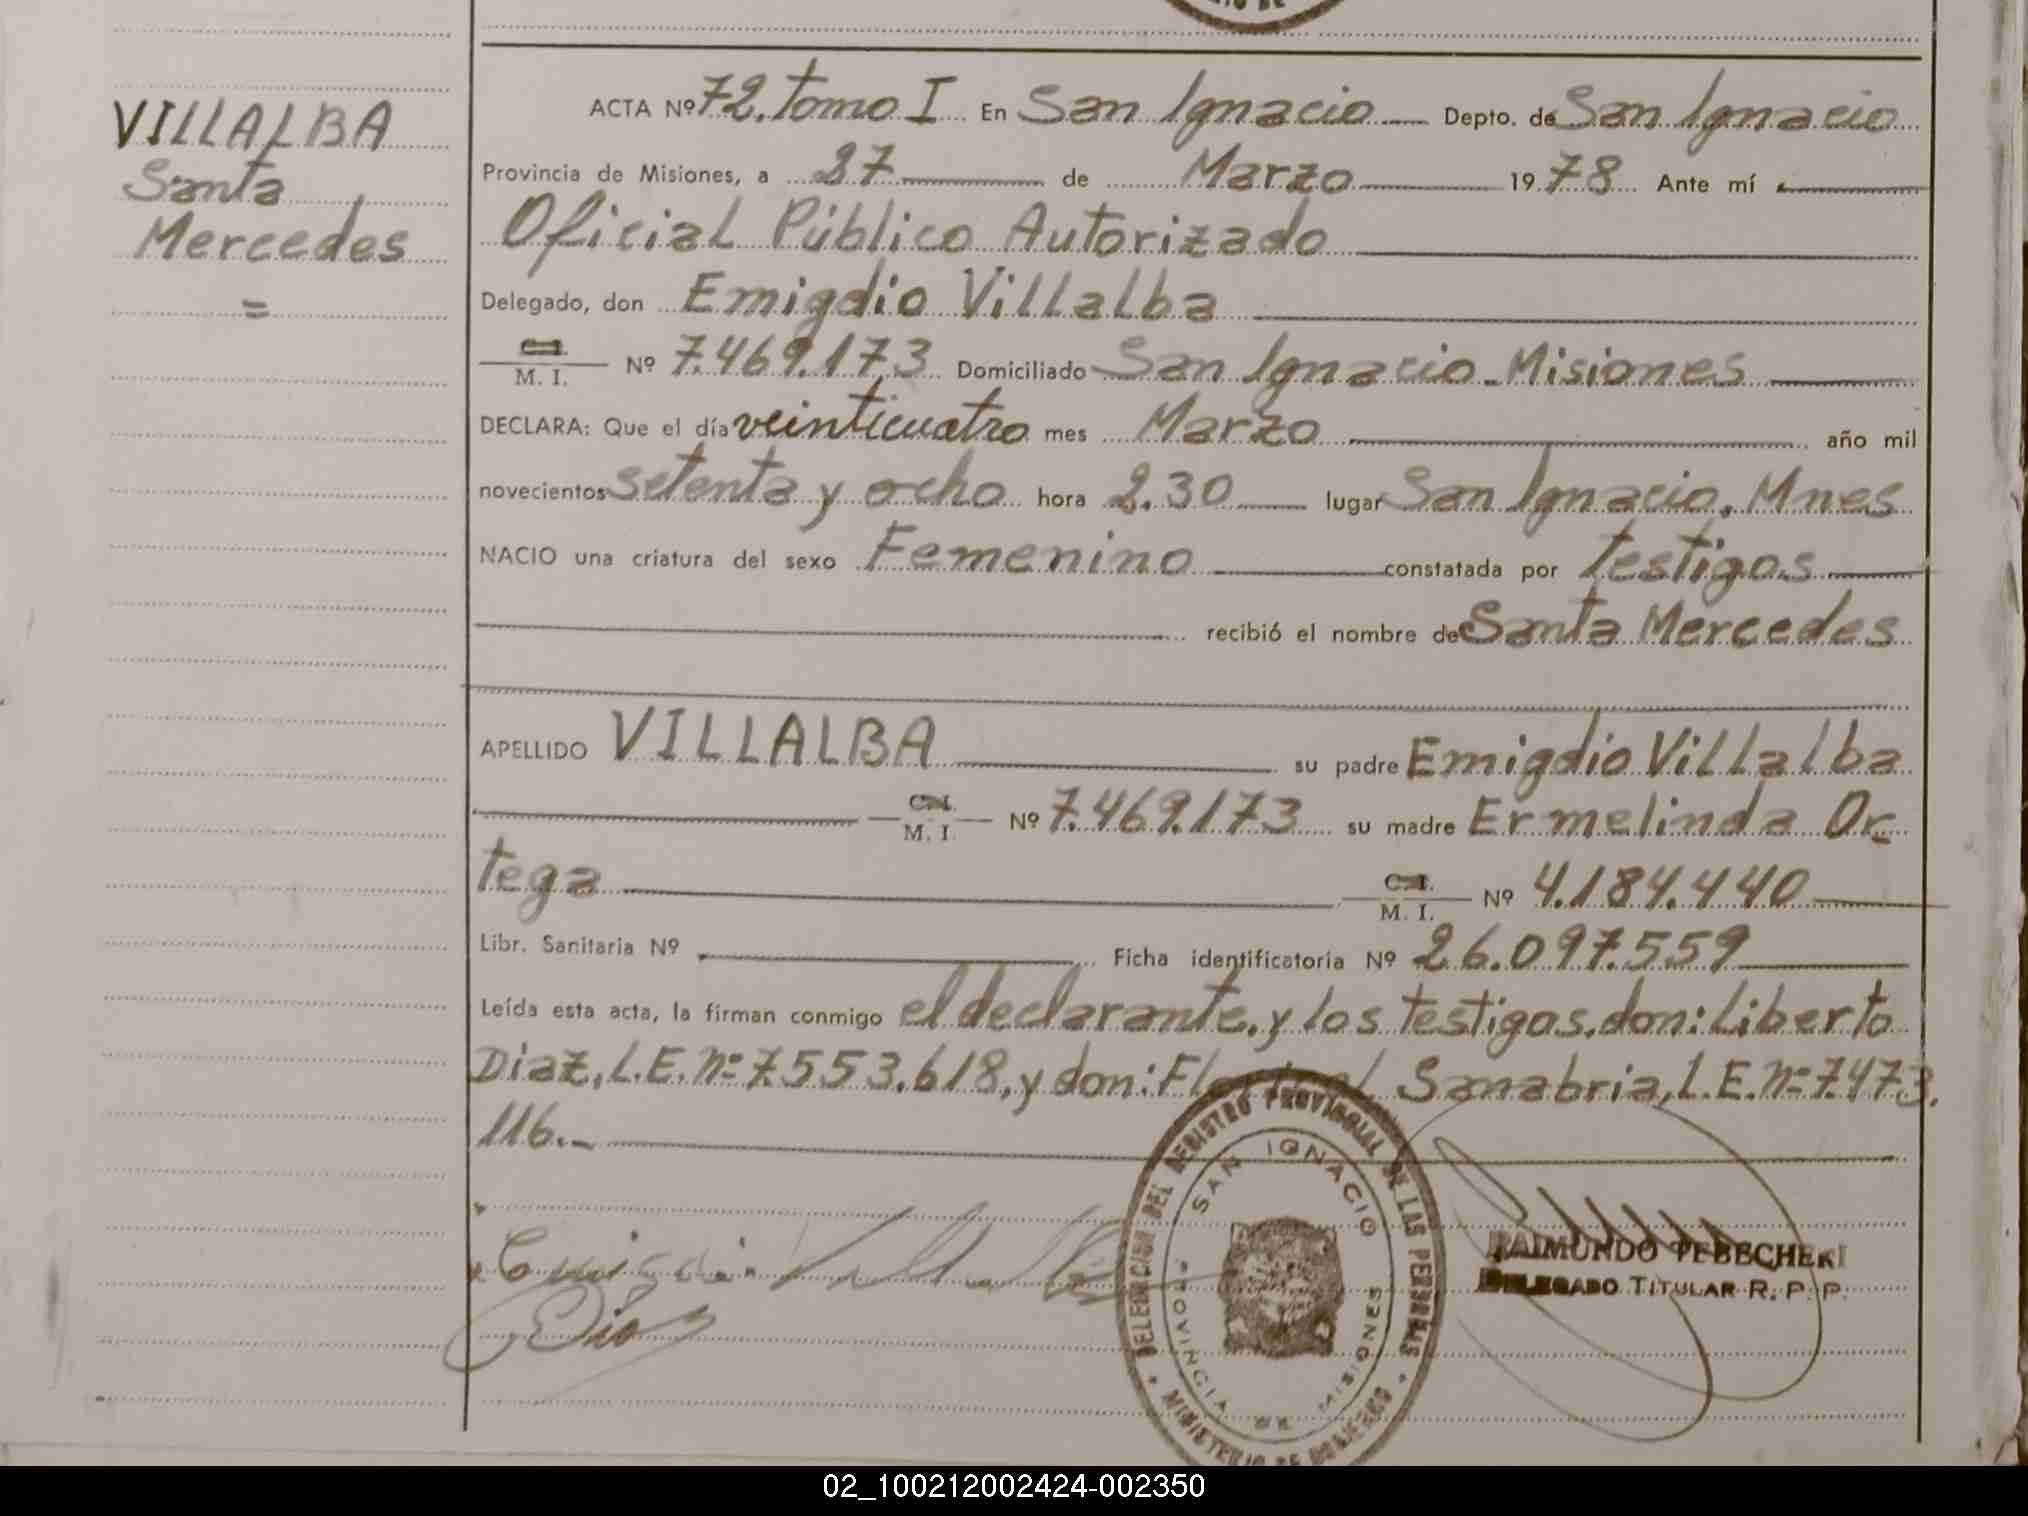 VILLALBA
Santa
Mercedes
=
ACTA Nº 72. Tomo I En San Ignacio Depto. de San Ignacio
Provincia de Misiones, a 27 de Marzo 1978 Ante mí
Oficial Público Autorizado
Delegado, don Emigdio Villalba
C.I. / M. I. Nº 7.469.173 Domiciliado San Ignacio - Misiones
DECLARA: Que el día veinticuatro mes Marzo año mil
novecientos setenta y ocho hora 2.30 lugar San Ignacio. Mnes
NACIO una criatura del sexo Femenino constatada por testigos
recibió el nombre de Santa Mercedes
APELLIDO VILLALBA su padre Emigdio Villalba
C.I. / M. I. Nº 7.469.173 su madre Ermelinda Or
tega C.I. / M. I. Nº 4.184.440
Libr. Sanitaria Nº Ficha identificatoria Nº 26.097.559
Leída esta acta, la firman conmigo el declarante, y los testigos, don: Liberto
Diaz, L.E. nº 7.553.618, y don: Sanabria, L.E. nº 7.473.
116.-
DELEGACION DEL REGISTRO PROVINCIAL DE LAS PERSONAS
SAN IGNACIO
PROVINCIA DE MISIONES
MINISTERIO DE GOBIERNO
RAIMUNDO PEBECHERI
DELEGADO TITULAR R. P. P.
02_100212002424-002350